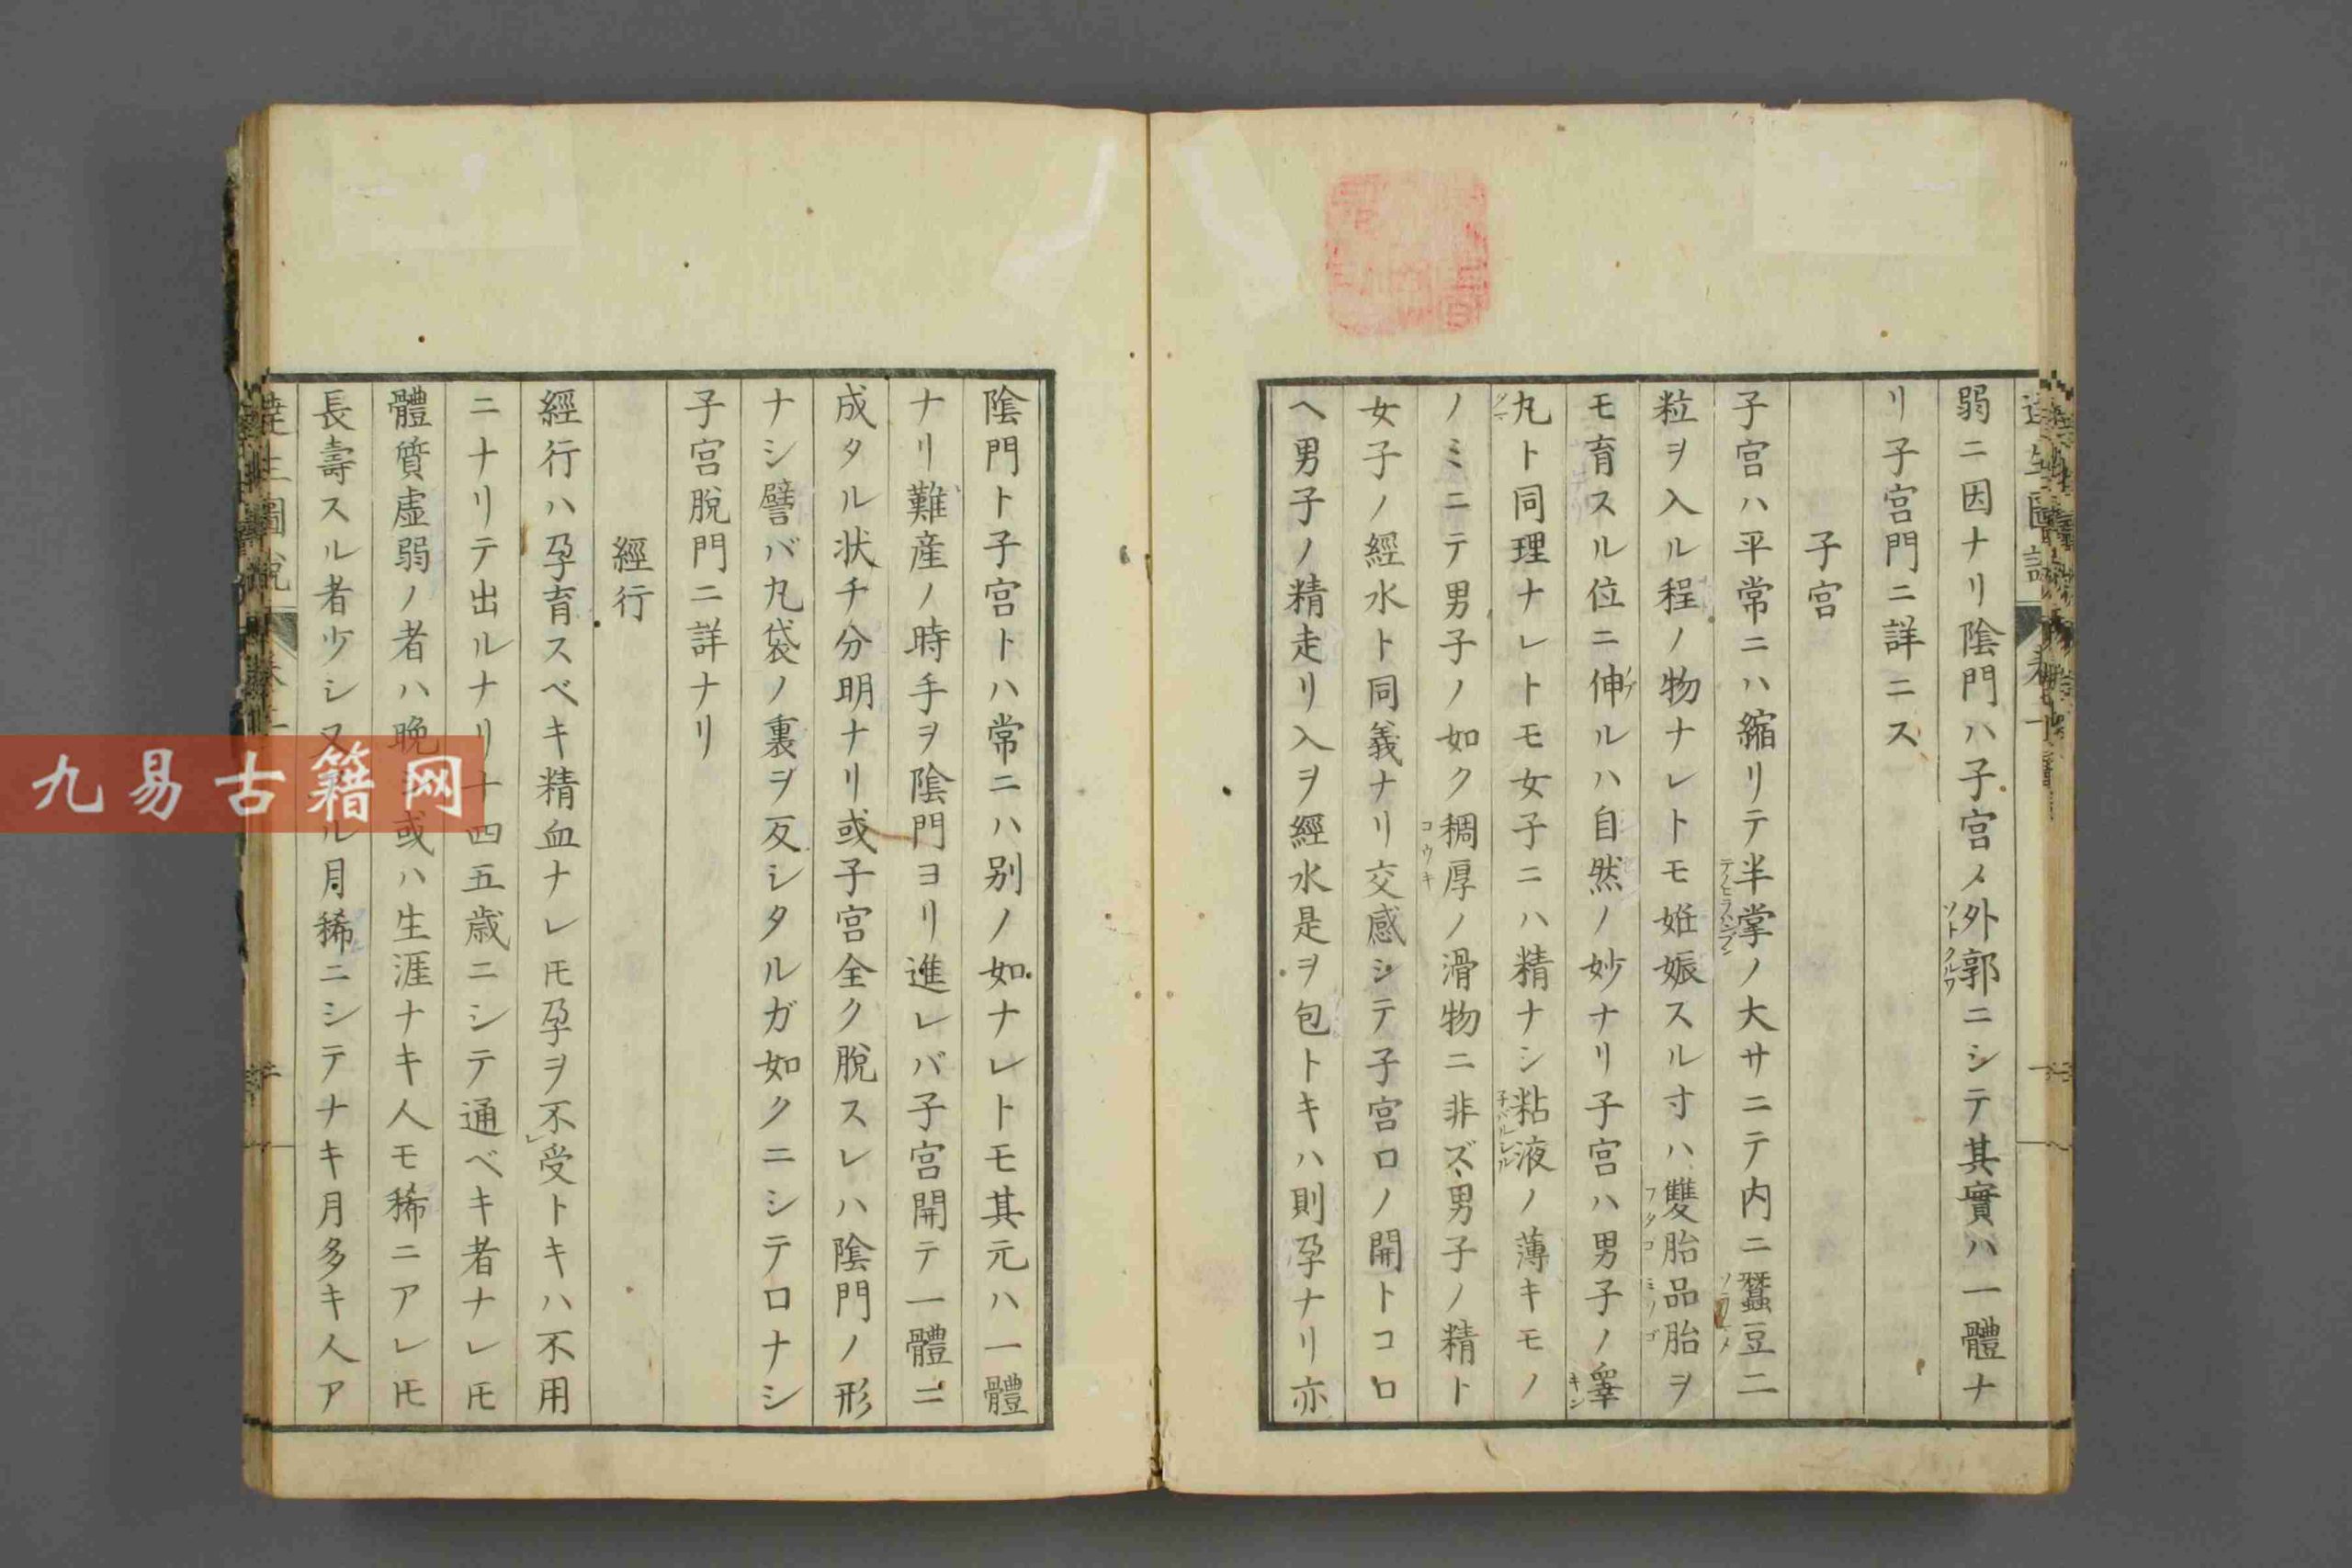 弱ニ因ナリ陰門ハ子宮ノ外郭ニシテ其實ハ一體ナ
リ子宮門ニ詳ニス
子宮
子宮ハ平常ニハ縮リテ半掌ノ大サニテ内ニ蠶豆二
粒ヲ入ル程ノ物ナレトモ姙娠スル寸ハ雙胎品胎ヲ
モ育スル位ニ伸ルハ自然ノ妙ナリ子宮ハ男子ノ睾
丸ト同理ナレトモ女子ニハ精ナシ粘液ノ薄キモノ
ノミニテ男子ノ如ク稠厚ノ滑物ニ非ズ男子ノ精ト
女子ノ經水ト同義ナリ交感シテ子宮口ノ開トコロ
ヘ男子ノ精走リ入ヲ經水是ヲ包トキハ則孕ナリ亦
陰門ト子宮トハ常ニハ別ノ如ナレトモ其元ハ一體
ナリ難産ノ時手ヲ陰門ヨリ進レバ子宮開テ一體ニ
成タル状チ分明ナリ或子宮全ク脱スレハ陰門ノ形
ナシ譬バ丸袋ノ裏ヲ反シタルガ如クニシテロナシ
子宮脱門ニ詳ナリ
經行
經行ハ孕育スベキ精血ナレ𪜈孕ヲ不受トキハ不用
ニナリテ出ルナリ十四五歳ニシテ通ベキ者ナレ𪜈
體質虚弱ノ者ハ晩シ或ハ生涯ナキ人モ稀ニアレ𪜈
長壽スル者少シ又ル月稀ニシテナキ月多キ人ア
九易古籍网